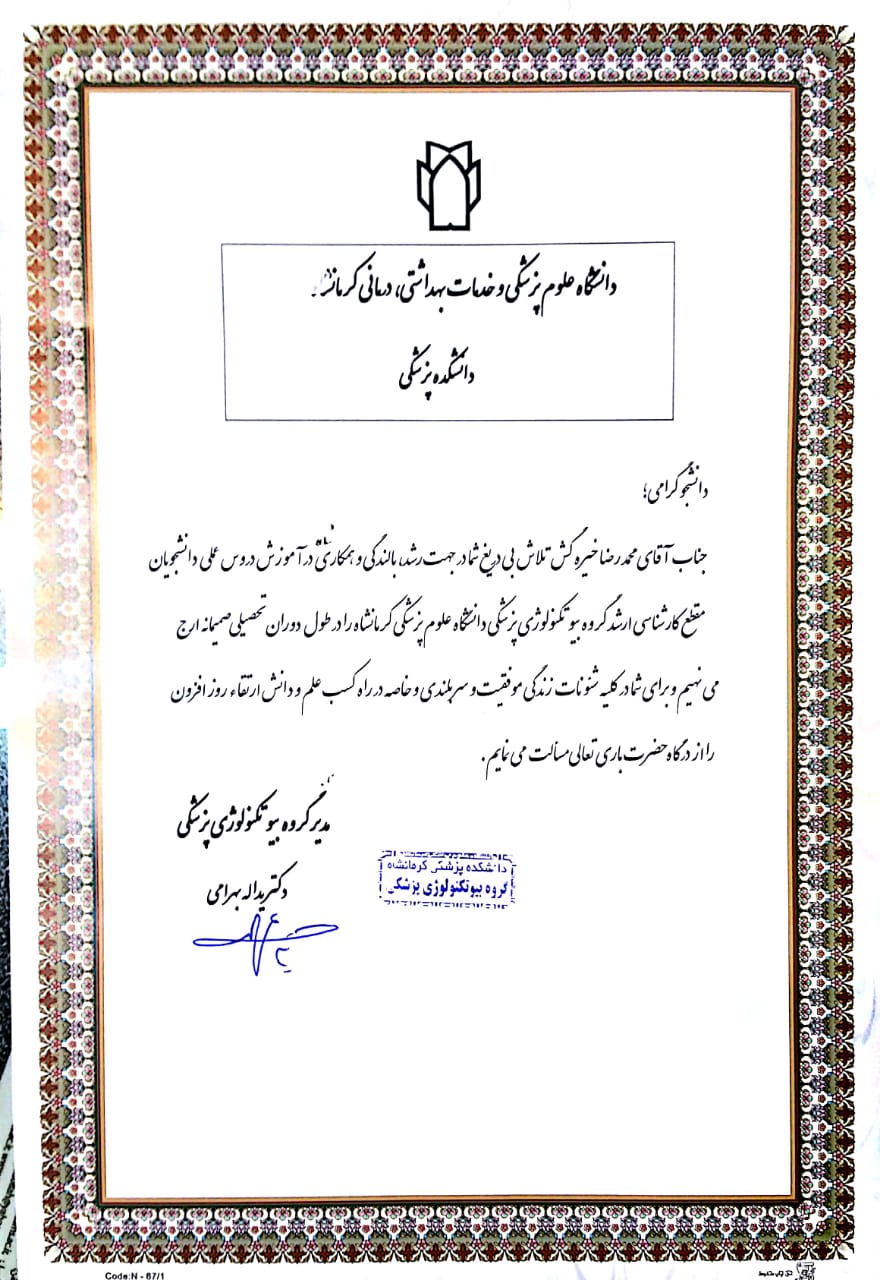 دانشگاه علوم پزشکی و خدمات بهداشتی، درمانی کرمانشاه
دانشکده پزشکی
دانشجو گرامی؛
جناب آقای محمدرضا خیره کش تلاش بی دریغ شما در جهت رشد، بالندگی و همکاری در آموزش دروس عملی دانشجویان
مقطع کارشناسی ارشد گروه بیوتکنولوژی پزشکی دانشگاه علوم پزشکی کرمانشاه را در طول دوران تحصیلی صمیمانه ارج
می نهیم و برای شما در کلیه شئونات زندگی موفقیت و سربلندی و خاصه در راه کسب علم و دانش ارتقاء روز افزون
را از درگاه حضرت باری تعالی مسألت می نمایم.
مدیر گروه بیوتکنولوژی پزشکی
دانشکده پزشکی کرمانشاه
گروه بیوتکنولوژی پزشکی
دکتر یداله بهرامی
Code:N - 67/1